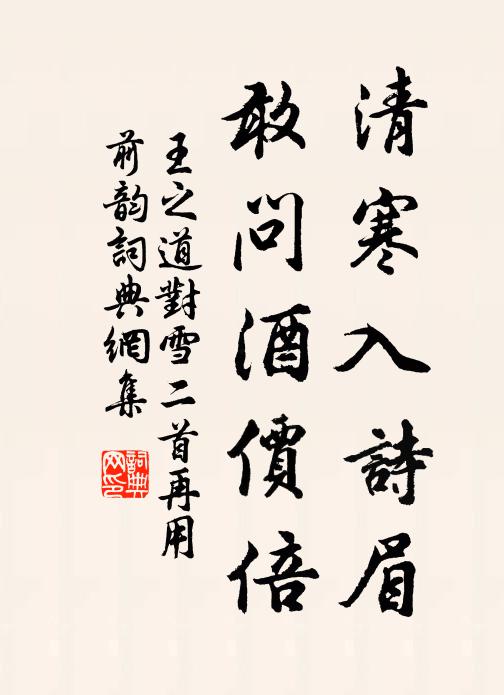 清寒入詩眉
敢問酒價倍
王之道對雪二首再用
前韵詞典網集
詞典
网印